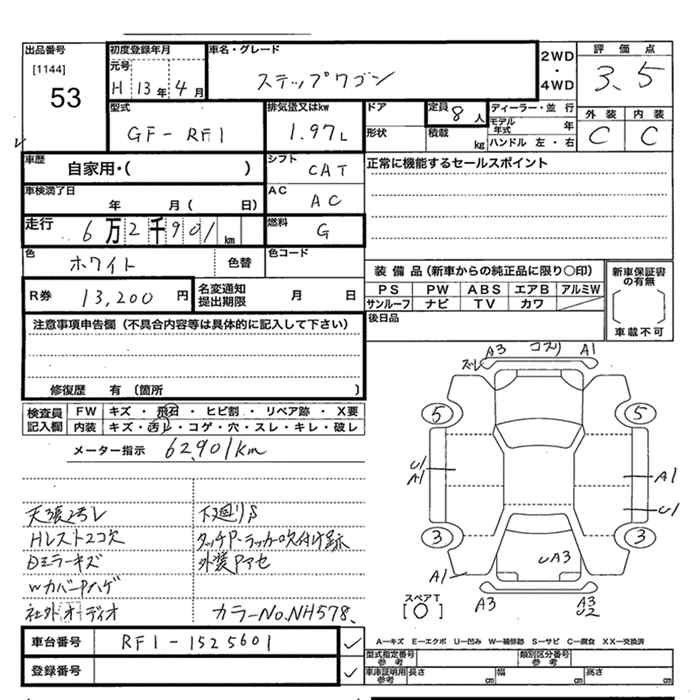 出品番号
[1144]
53
初度登録年月
元号
H 13年 4月
車名・グレード
ステップワゴン
2WD
・
4WD
評 価 点
3.5
型式
GF-RF1
排気量又はkw
1.97L
ドア
形状
定員 8人
積載 kg
ディーラー・並 行
モデル年式 年
ハンドル 左・右
外 装 内 装
C C
車歴
自家用・( )
シフト CAT
正常に機能するセールスポイント
車検満了日
年 月( 日)
AC AC
走行 6万2千901km
燃料 G
色
ホワイト 色替
色コード
R券 13,200円
名変通知
提出期限 月 日
装 備 品 (新車からの純正品に限り○印)
PS PW ABS エアB アルミW
サンルーフ ナビ TV カワ
新車保証書
の有無
車載不可
後日品
注意事項申告欄(不具合内容等は具体的に記入して下さい)
修復歴 有 (箇所 )
検査員
記入欄
FW キズ・飛石・ヒビ割・リペア跡・X要
内装 キズ・汚レ・コゲ・穴・スレ・キレ・破レ
メーター指示 62,901km
天張2号レ 下廻りS
Hレスト2コ欠 タッチP・ラッカー吹付け跡
Dミラーキズ 外装Pアセ
WカバーPハゲ
社外オーディオ カラーNo.NH578.
ズレ A3 コスリ A1
5 5
U1
A1
A1
U1
3 3
UA3
A1
A3 A3
U2
スペアT
[○]
車台番号 RF1-1525601
登録番号
A―キズ E―エクボ U―凹み W―補修跡 S―サビ C―腐食 XX―交換済
型式指定番号
参考
類別区分番号
参考
車庫証明用
参考
長さ cm 幅 cm 高さ cm